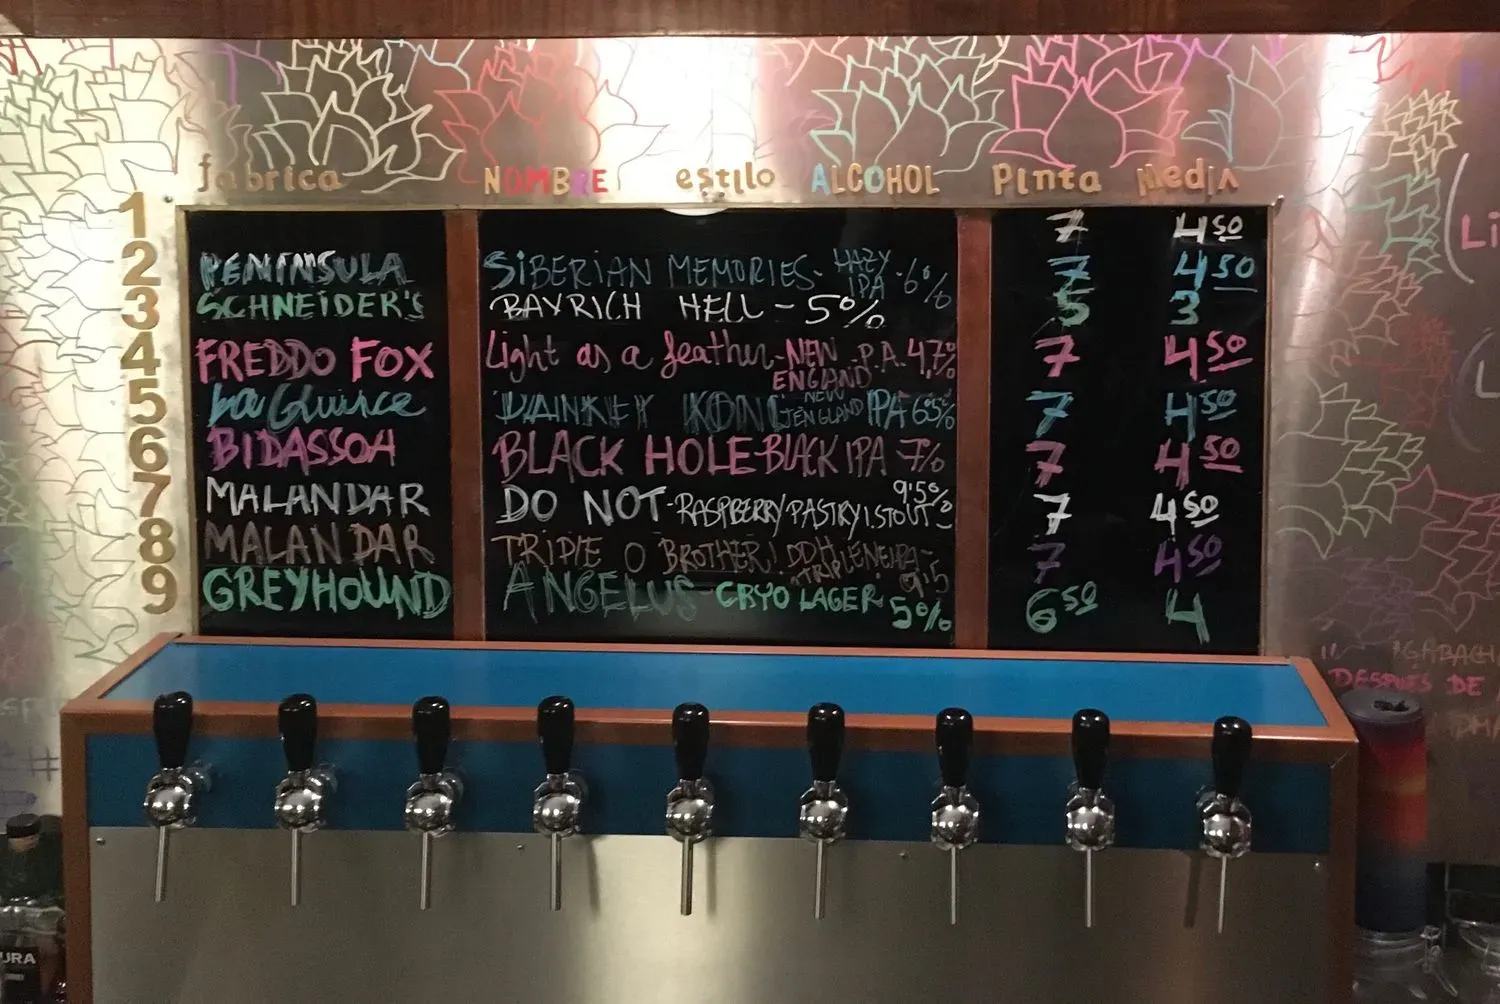 fabrica NOMBRE estilo ALCOHOL Pinta Media
1 7 4 50
2 PENINSULA SIBERIAN MEMORIES - HAZY IPA - 6% 7 4 50
3 SCHNEIDER'S BAYRICH HELL - 5% 5 3
4 FREDDO FOX Light as a feather - NEW ENGLAND .P.A. 4,7% 7 4 50
5 La Quince DANKEY KONG NEW ENGLAND IPA 6'5% 7 4 50
6 BIDASSOA BLACK HOLE - BLACK IPA 7% 7 4 50
7 MALANDAR DO NOT - RASPBERRY PASTRY I.STOUT 9'5% 7 4 50
8 MALANDAR TRIPLE O BROTHER! 9'5 7 4 50
9 GREYHOUND ANGELUS - CRYO LAGER 5% 6 50 4
Li
L
DESPUÉS DE
#
URA